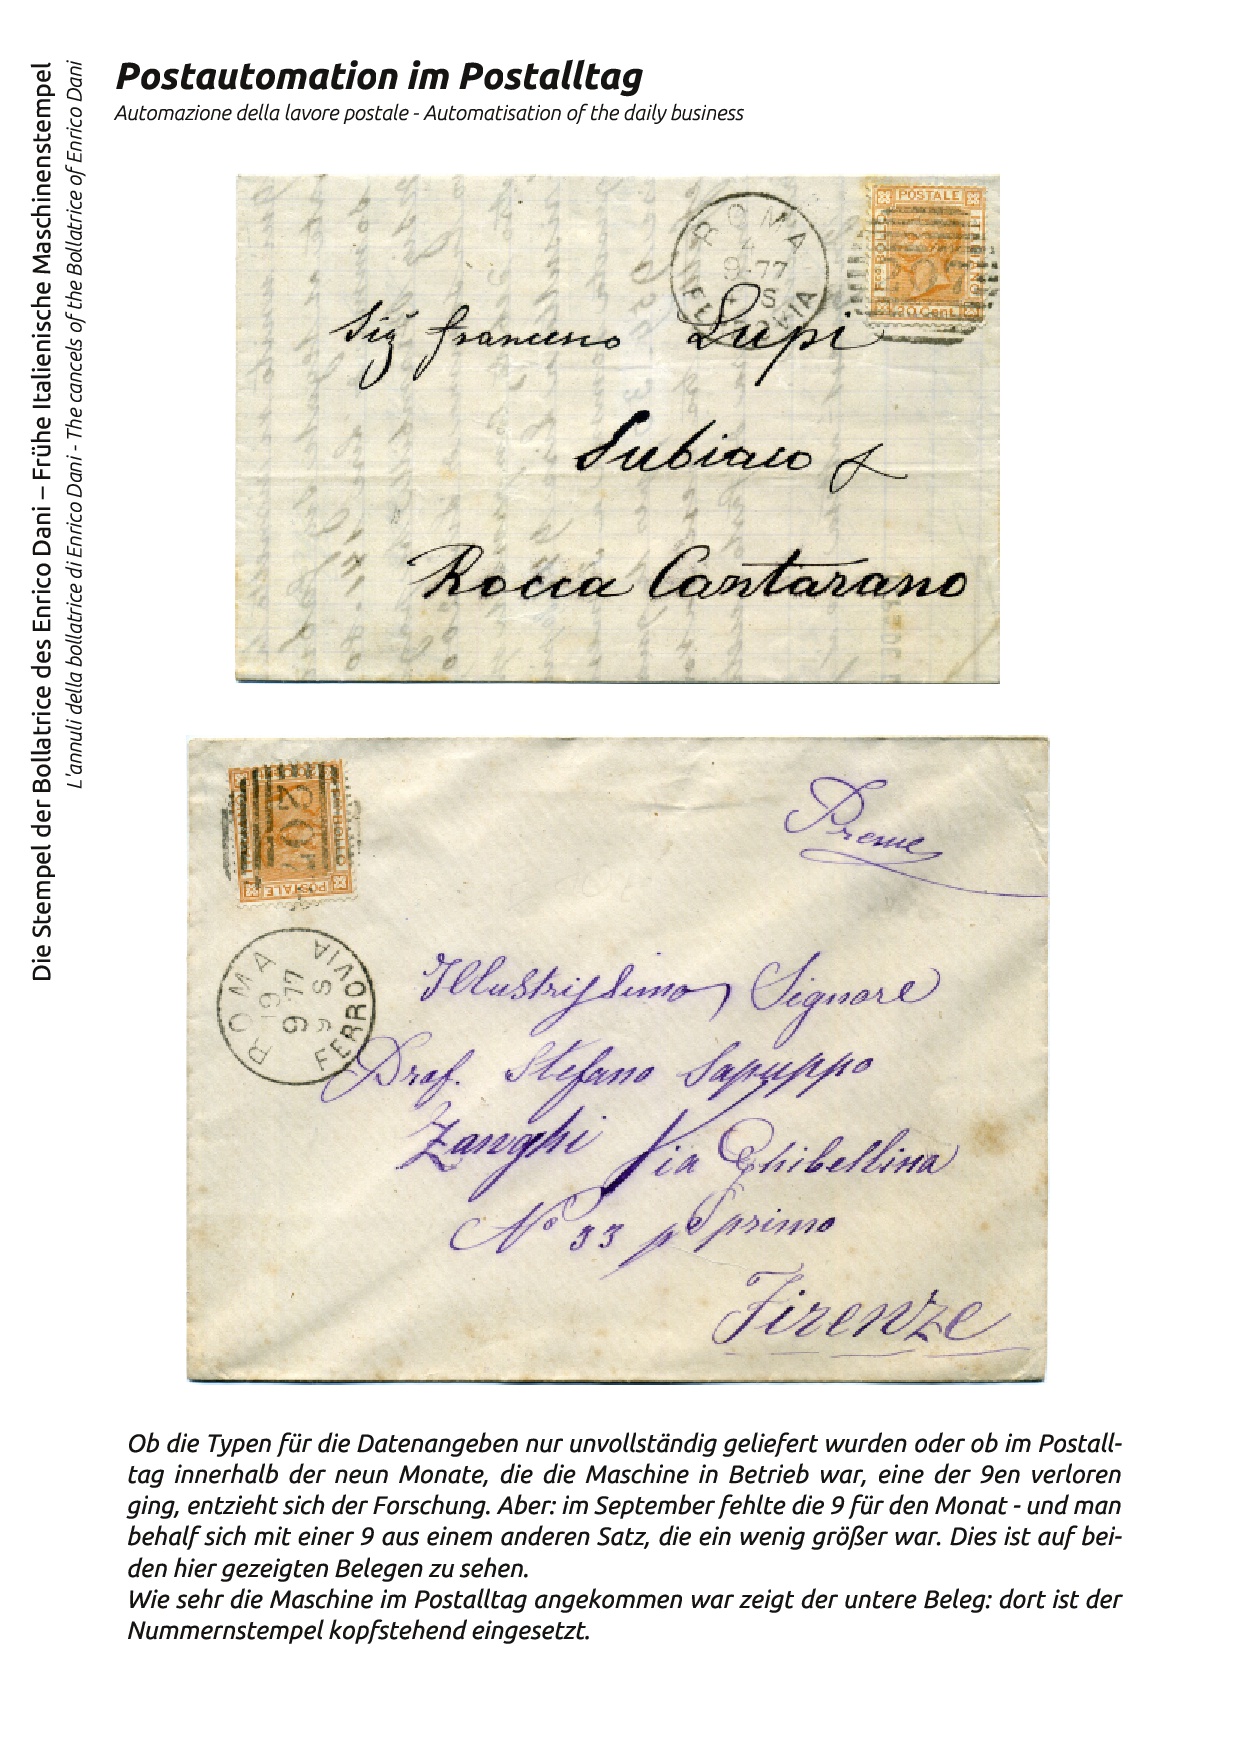 Die Stempel der Bollatrice des Enrico Dani – Frühe Italienische Maschinenstempel
L'annuli della bollatrice di Enrico Dani - The cancels of the Bollatrice of Enrico Dani
Postautomation im Postalltag
Automazione della lavore postale - Automatisation of the daily business
ROMA
4
9·77
S
FE VIA
POSTALE
BOLLO
20 Cent.
207
Sig Francesco Lupi
Subiaco
Rocca Cantarano
207
POSTALE
BOLLO
ROMA
19
9·77
9 S
FERROVIA
Preme
Illustrissimo Signore
Prof. Stefano Sapuppo
Zanghi Via Ghibellina
No 33 po primo
Firenze
Ob die Typen für die Datenangeben nur unvollständig geliefert wurden oder ob im Postall-
tag innerhalb der neun Monate, die die Maschine in Betrieb war, eine der 9en verloren
ging, entzieht sich der Forschung. Aber: im September fehlte die 9 für den Monat - und man
behalf sich mit einer 9 aus einem anderen Satz, die ein wenig größer war. Dies ist auf bei-
den hier gezeigten Belegen zu sehen.
Wie sehr die Maschine im Postalltag angekommen war zeigt der untere Beleg: dort ist der
Nummernstempel kopfstehend eingesetzt.